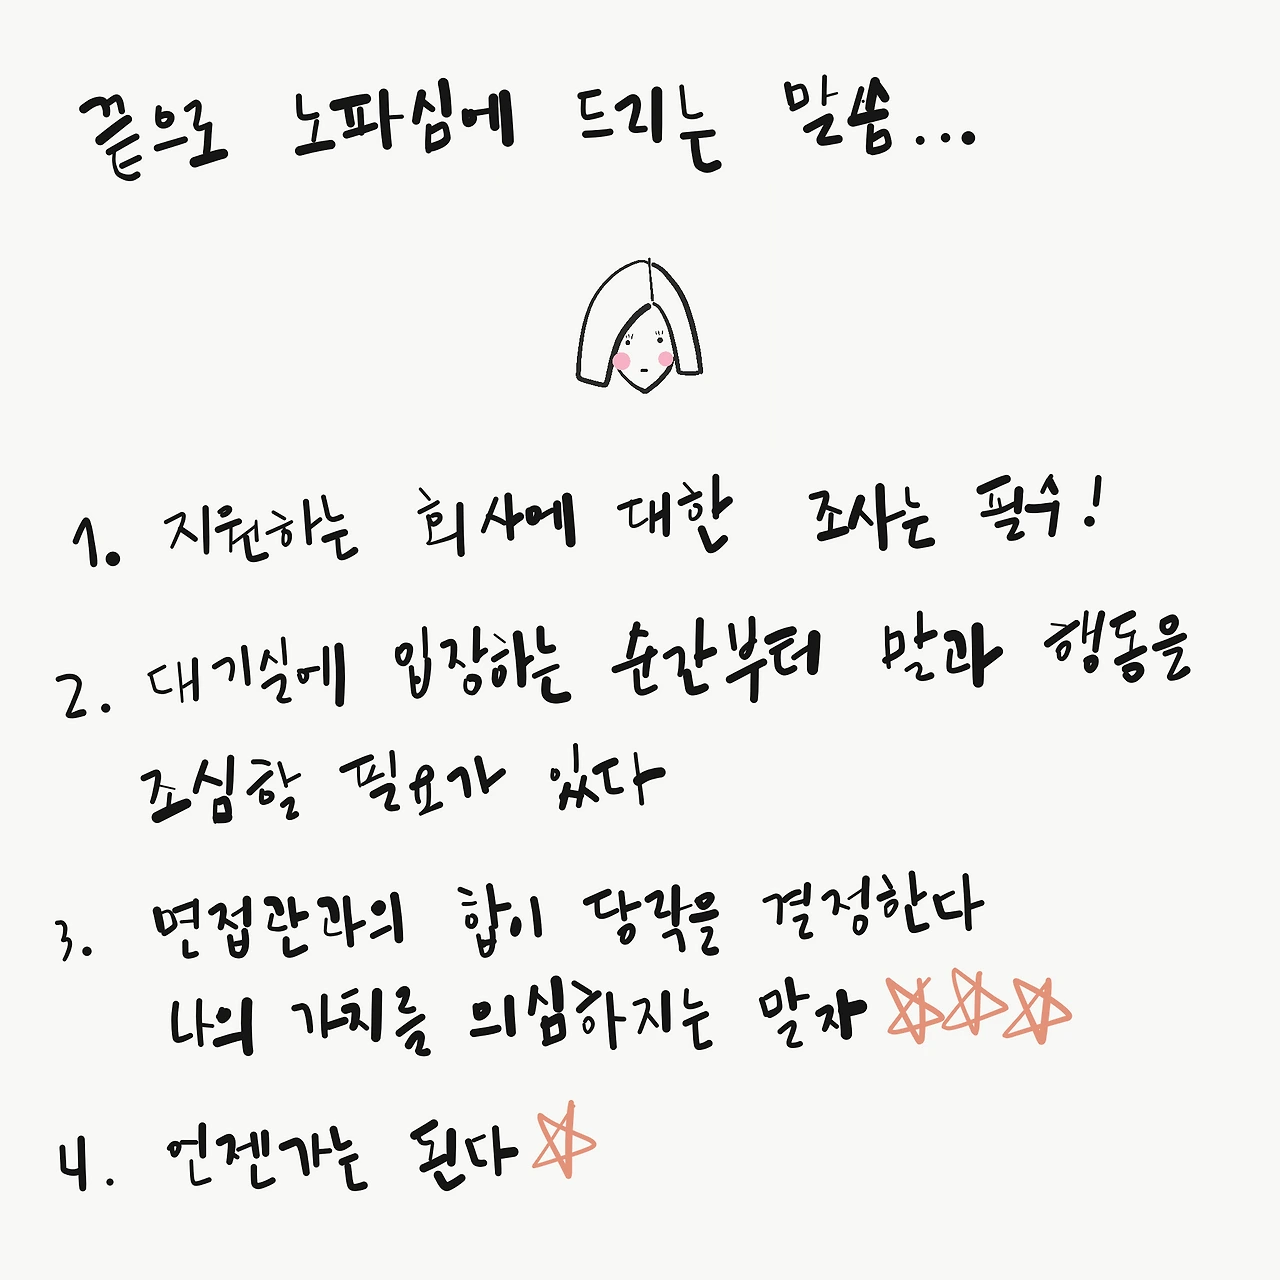 끝으로 노파심에 드리는 말씀...
1. 지원하는 회사에 대한 조사는 필수!
2. 대기실에 입장하는 순간부터 말과 행동을
조심할 필요가 있다
3. 면접관과의 합이 당락을 결정한다
나의 가치를 의심하지는 말자
4. 언젠가는 된다